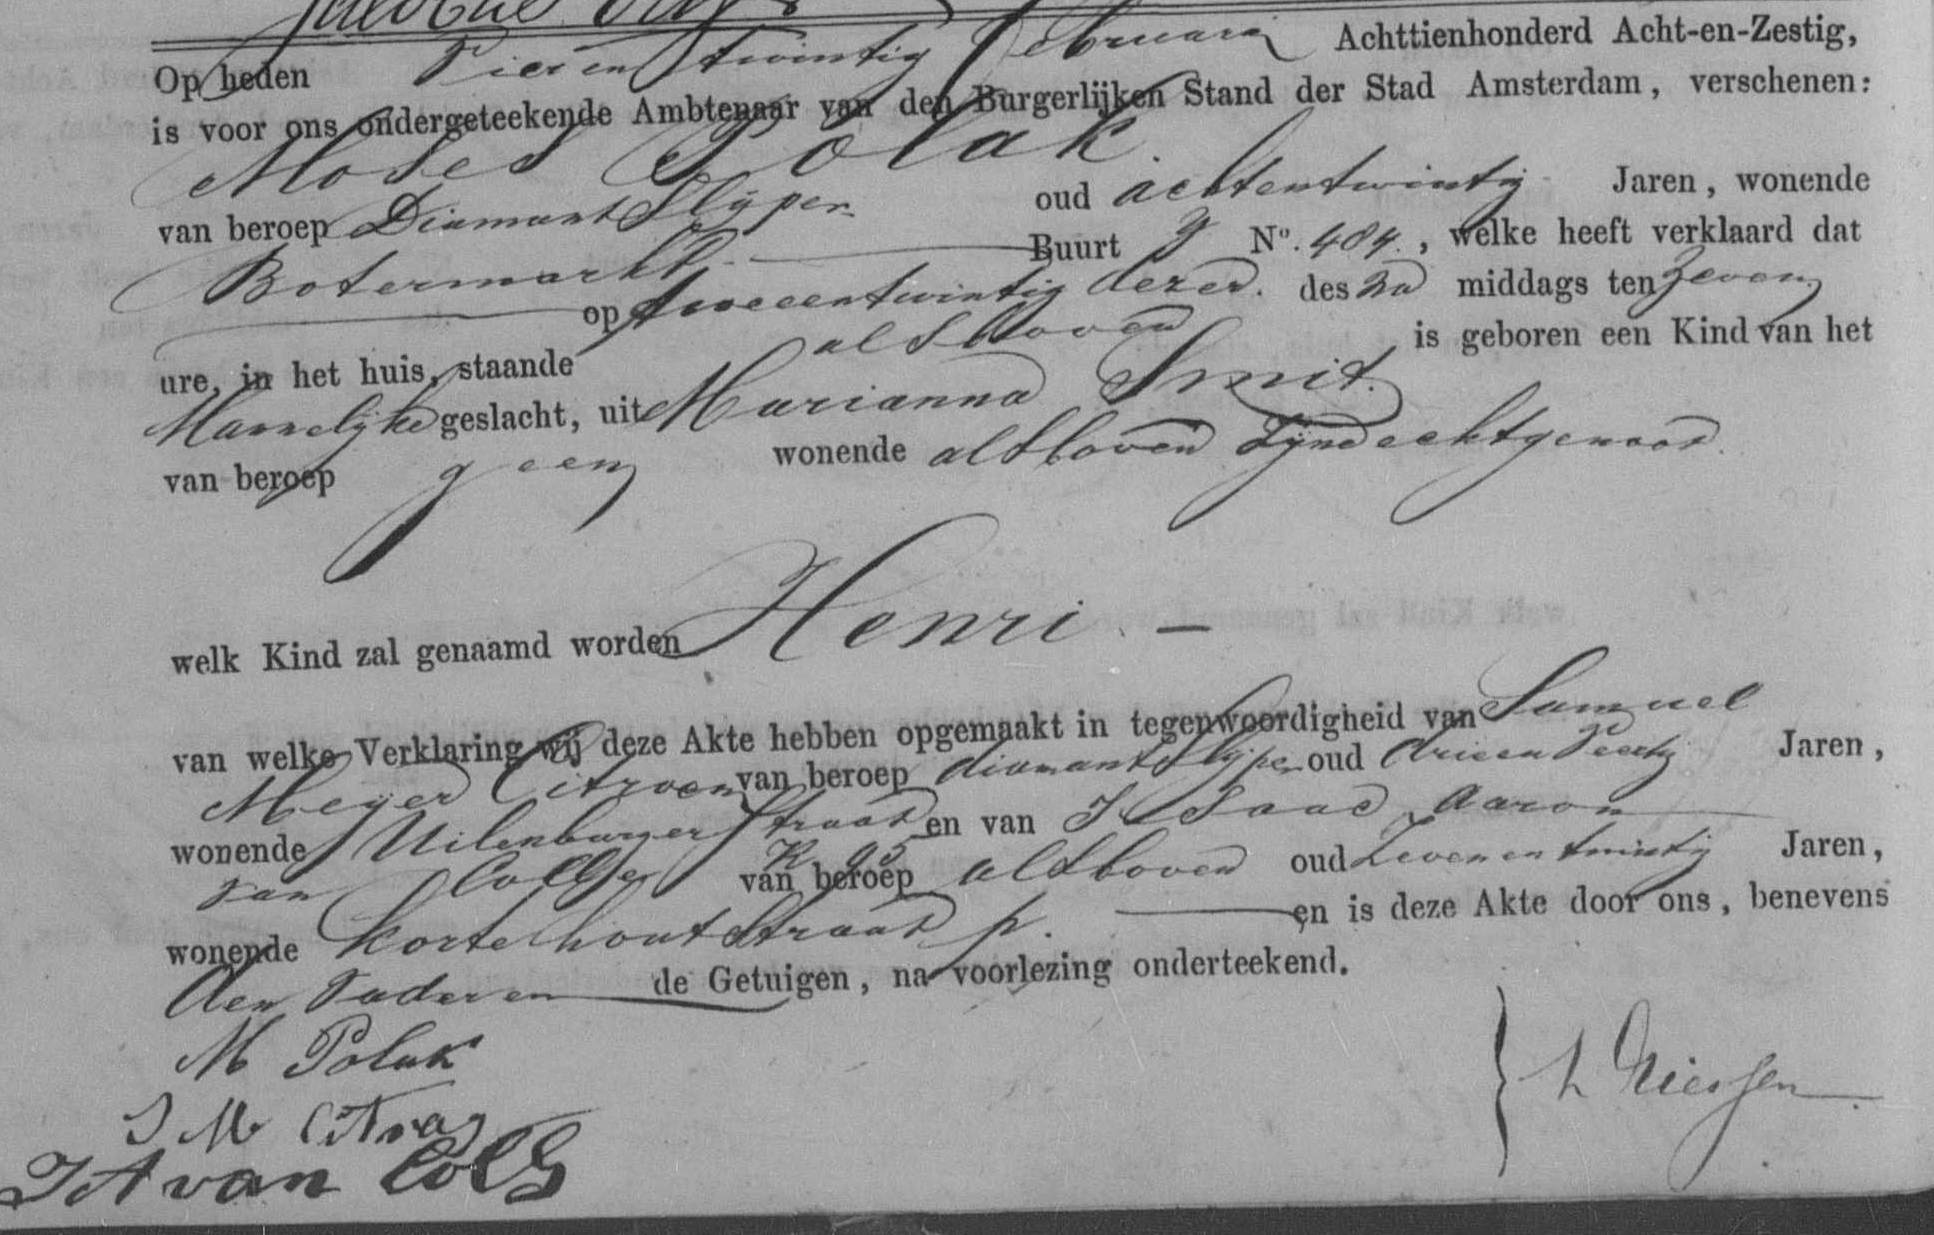 Op heden Vier en twintig Februarij Achttienhonderd Acht-en-Zestig,
is voor ons ondergeteekende Ambtenaar van den Burgerlijken Stand der Stad Amsterdam, verschenen:
Moses Polak.
van beroep Diamantslyper oud achtentwintig Jaren, wonende
Botermarkt Buurt No. 484., welke heeft verklaard dat
op tweeentwintig dezer. des na middags ten zeven
ure, in het huis, staande als boven is geboren een Kind van het
Mannelyke geslacht, uit Marianna Smit.
van beroep geen wonende als boven zyne echtgenoot.
welk Kind zal genaamd worden Henri -
van welke Verklaring wij deze Akte hebben opgemaakt in tegenwoordigheid van Samuel
Meyer Citroen van beroep diamantslyper oud drieenveertig Jaren,
wonende Uilenburgerstraat en van Isaac Aaron
van Collem van beroep als boven oud zevenentwintig Jaren,
wonende Korte houtstraat p. en is deze Akte door ons, benevens
den Vader en de Getuigen, na voorlezing onderteekend.
M Polak
S M Citroen
I A van